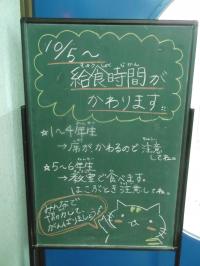 10/5~
給食時間が
かわります!!
☆1~4年生
→席がかわるので注意
してね。
☆5~6年生
→教室で食べます。
はこぶとき注意してね。
みんなで
協力して
がんばりましょう